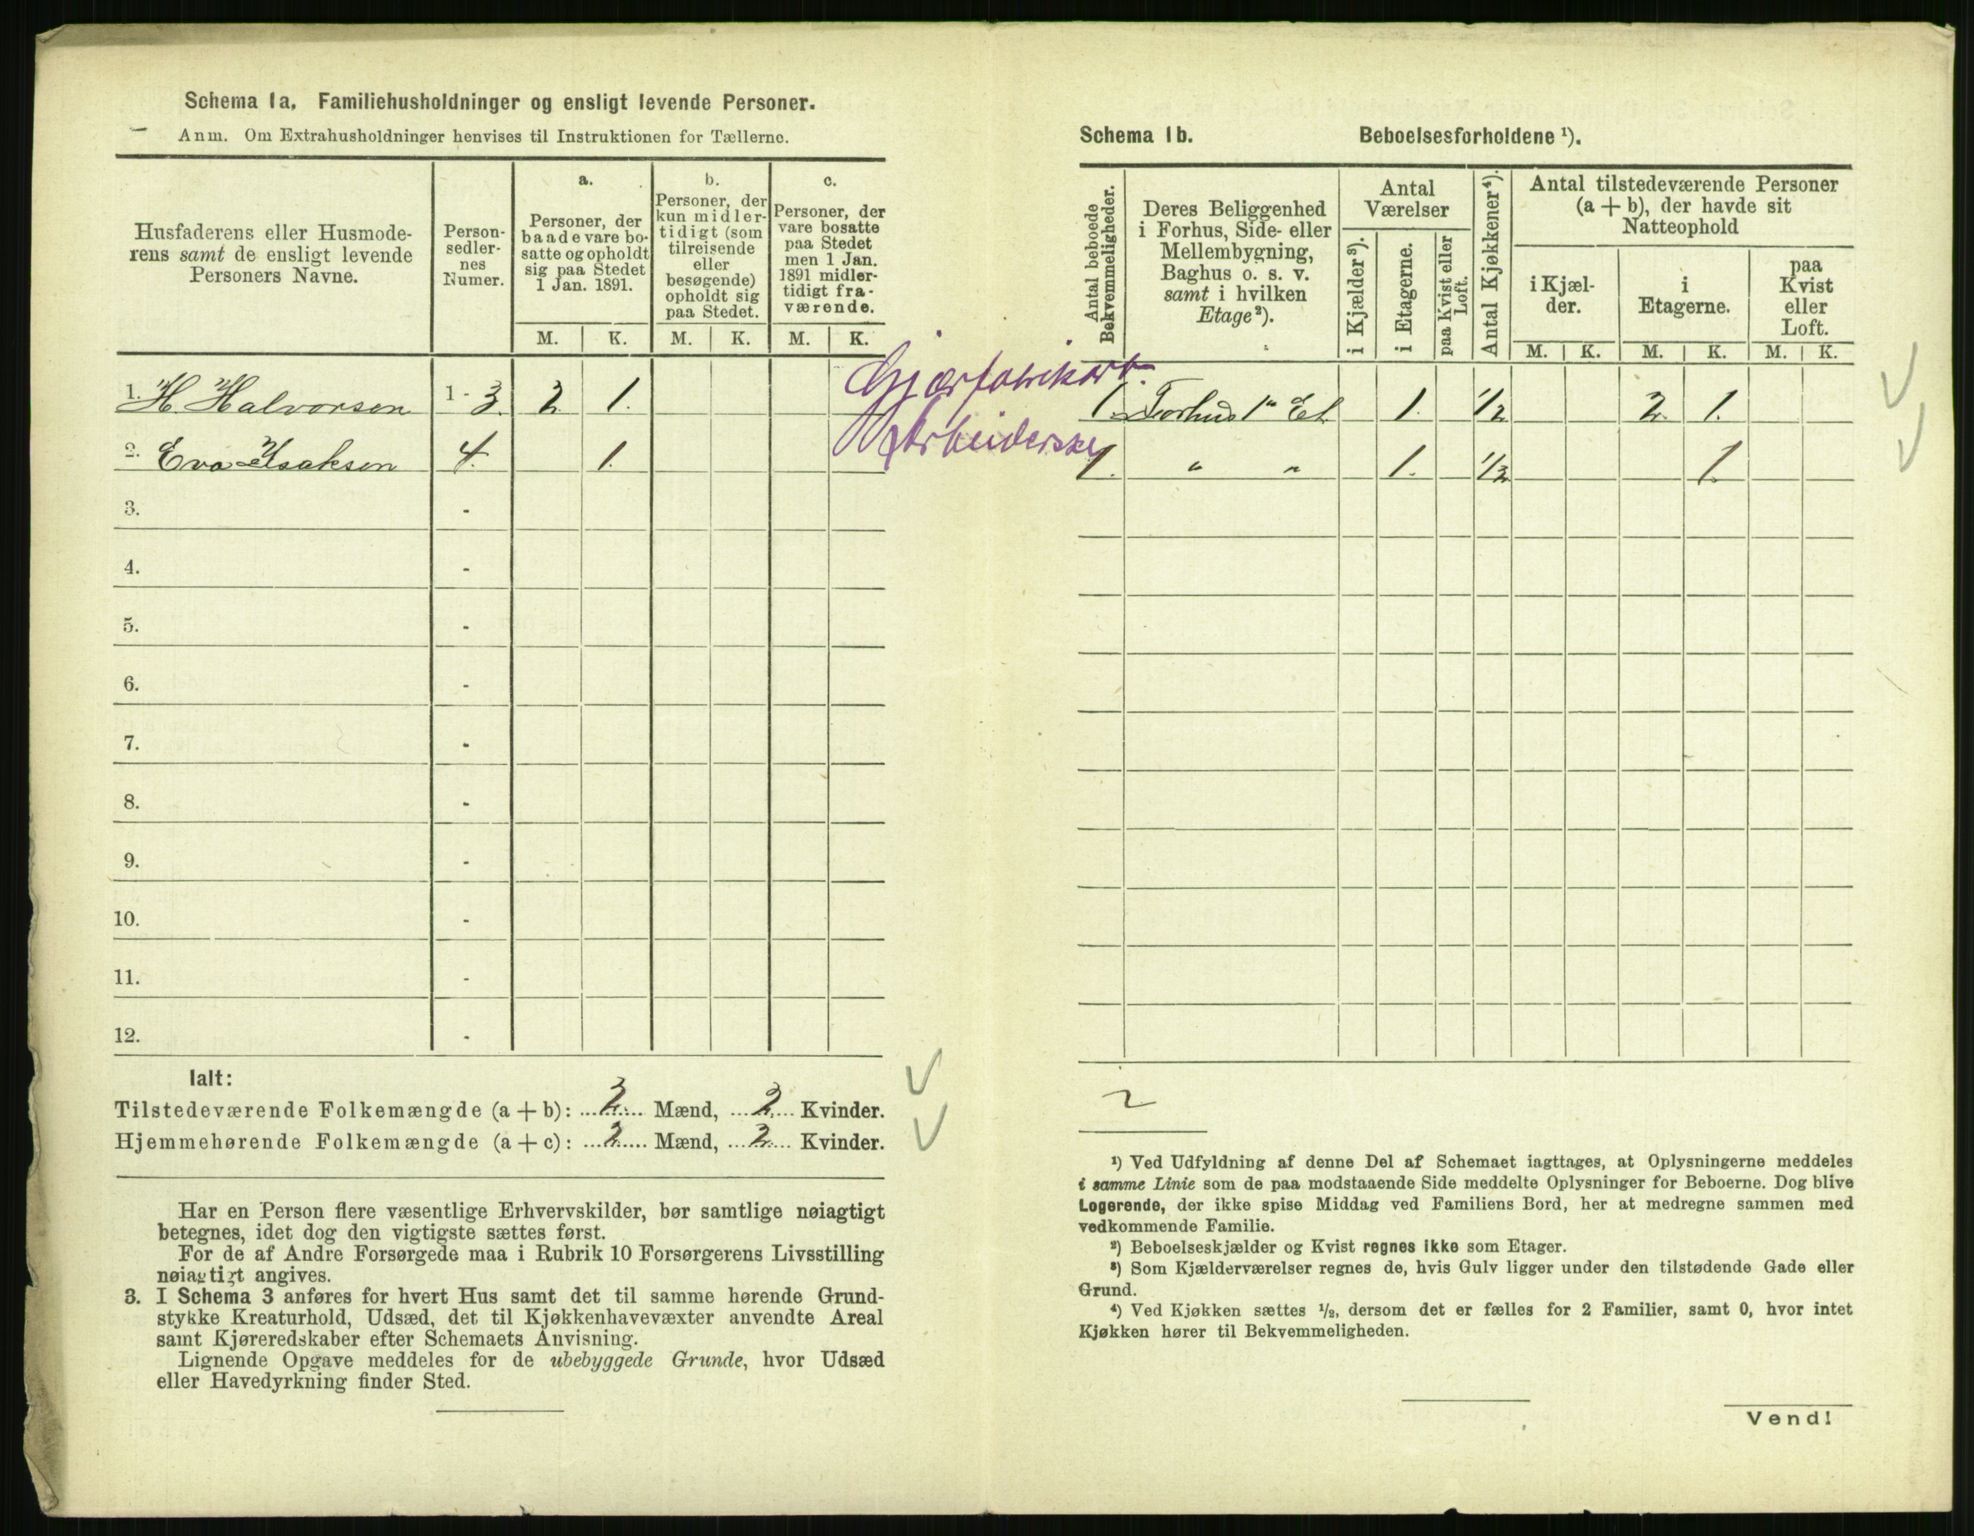 Schema 1a. Familiehusholdninger og ensligt levende Personer.
Anm. Om Extrahusholdninger henvises til Instruktionen for Tællerne.
Husfaderens eller Husmoderens samt de ensligt levende Personers Navne.
Person-sedler-nes Numer.
a.
Personer, der baade vare bosatte og opholdt sig paa Stedet 1 Jan. 1891.
b.
Personer, der kun midlertidigt (som tilreisende eller besøgende) opholdt sig paa Stedet.
c.
Personer, der vare bosatte paa Stedet men 1 Jan. 1891 midlertidigt fraværende.
M. K. M. K. M. K.
1. H. Halvorsen 1 - 3. 2 1.
2. Eva Isaksen 4. 1.
3. -
4. -
5. -
6. -
7. -
8. -
9. -
10. -
11. -
12. -
Ialt:
Tilstedeværende Folkemængde (a + b): 2 Mænd, 2 Kvinder.
Hjemmehørende Folkemængde (a + c): 2 Mænd, 2 Kvinder.
Har en Person flere væsentlige Erhvervskilder, bør samtlige nøiagtigt
betegnes, idet dog den vigtigste sættes først.
For de af Andre Forsørgede maa i Rubrik 10 Forsørgerens Livsstilling
nøiagtigt angives.
3. I Schema 3 anføres for hvert Hus samt det til samme hørende Grund-
stykke Kreaturhold, Udsæd, det til Kjøkkenhavevæxter anvendte Areal
samt Kjøreredskaber efter Schemaets Anvisning.
Lignende Opgave meddeles for de ubebyggede Grunde, hvor Udsæd
eller Havedyrkning finder Sted.
Arbeiderske
Schema 1b. Beboelsesforholdene ¹).
Antal beboede Bekvemmeligheder.
Deres Beliggenhed i Forhus, Side- eller Mellembygning, Baghus o. s. v. samt i hvilken Etage²).
Antal Værelser
i Kjælder³).
i Etagerne.
paa Kvist eller Loft.
Antal Kjøkkener⁴).
Antal tilstedeværende Personer (a + b), der havde sit Natteophold
i Kjælder.
i Etagerne.
paa Kvist eller Loft.
M. K. M. K. M. K.
1. Forhus 1ᵉ Et 1. 1/2 2 1.
1. " " 1. 1/2 1.
2
¹) Ved Udfyldning af denne Del af Schemaet iagttages, at Oplysningerne meddeles
i samme Linie som de paa modstaaende Side meddelte Oplysninger for Beboerne. Dog blive
Logerende, der ikke spise Middag ved Familiens Bord, her at medregne sammen med
vedkommende Familie.
²) Beboelseskjælder og Kvist regnes ikke som Etager.
³) Som Kjælderværelser regnes de, hvis Gulv ligger under den tilstødende Gade eller
Grund.
⁴) Ved Kjøkken sættes ½, dersom det er fælles for 2 Familier, samt 0, hvor intet
Kjøkken hører til Bekvemmeligheden.
Vend!